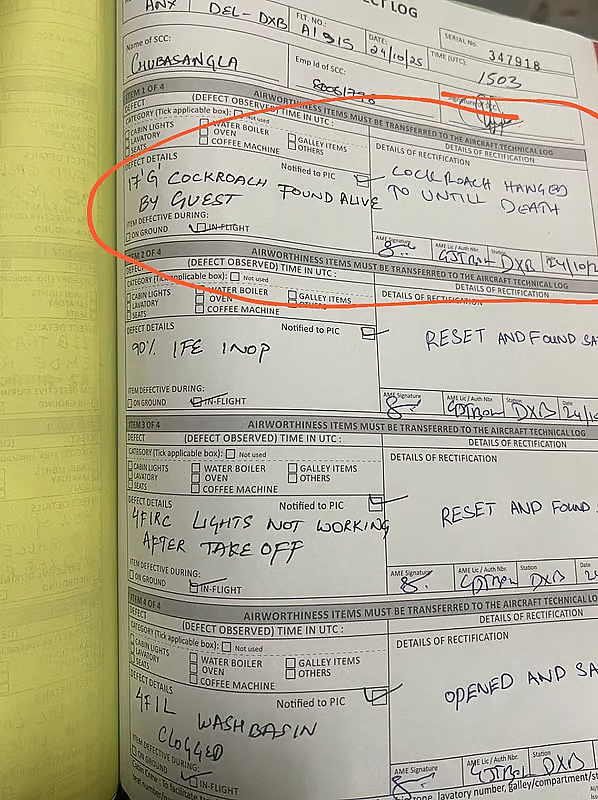 ECT LOG
ANX DEL-DXB FLT. NO.: AI 915 DATE: 24/10/25 SERIAL No. 347918
TIME (UTC): 1503
Name of SCC: CHUBASANGLA Emp Id of SCC:
Signature of SCC
ITEM 1 OF 4 AIRWORTHINESS ITEMS MUST BE TRANSFERRED TO THE AIRCRAFT TECHNICAL LOG
DEFECT (DEFECT OBSERVED) TIME IN UTC : DETAILS OF RECTIFICATION
CATEGORY (Tick applicable box): Not used
CABIN LIGHTS WATER BOILER GALLEY ITEMS DETAILS OF RECTIFICATION
LAVATORY OVEN OTHERS
SEATS COFFEE MACHINE
DEFECT DETAILS Notified to PIC
17'G' COCKROACH FOUND ALIVE COCKROACH HANGED
BY GUEST TO UNTILL DEATH
ITEM DEFECTIVE DURING:
ON GROUND IN-FLIGHT
AME Signature AME Lic / Auth Nbr. Station DXB 24/10/2
ITEM 2 OF 4 AIRWORTHINESS ITEMS MUST BE TRANSFERRED TO THE AIRCRAFT TECHNICAL LOG
DEFECT (DEFECT OBSERVED) TIME IN UTC : DETAILS OF RECTIFICATION
CATEGORY (Tick applicable box): Not used
CABIN LIGHTS WATER BOILER GALLEY ITEMS DETAILS OF RECTIFICATION
LAVATORY OVEN OTHERS
SEATS COFFEE MACHINE
DEFECT DETAILS Notified to PIC
90% IFE INOP RESET AND FOUND SA
ITEM DEFECTIVE DURING:
ON GROUND IN-FLIGHT
AME Signature AME Lic / Auth Nbr. Station DXB Date 24/1
ITEM 3 OF 4 AIRWORTHINESS ITEMS MUST BE TRANSFERRED TO THE AIRCRAFT TECHNICAL LOG
DEFECT (DEFECT OBSERVED) TIME IN UTC : DETAILS OF RECTIFICATION
CATEGORY (Tick applicable box): Not used
CABIN LIGHTS WATER BOILER GALLEY ITEMS DETAILS OF RECTIFICATION
LAVATORY OVEN OTHERS
SEATS COFFEE MACHINE
DEFECT DETAILS Notified to PIC
4FIRC LIGHTS NOT WORKING RESET AND FOUND
AFTER TAKE OFF
ITEM DEFECTIVE DURING:
ON GROUND IN-FLIGHT
AME Signature AME Lic / Auth Nbr. Station DXB
ITEM 4 OF 4 AIRWORTHINESS ITEMS MUST BE TRANSFERRED TO THE AIRCRAFT TECHNICAL LOG
DEFECT (DEFECT OBSERVED) TIME IN UTC : DETAILS OF RECTIFICATION
CATEGORY (Tick applicable box): Not used
CABIN LIGHTS WATER BOILER GALLEY ITEMS DETAILS OF RECTIFICATION
LAVATORY OVEN OTHERS
SEATS COFFEE MACHINE
DEFECT DETAILS Notified to PIC
4FIL WASHBASIN OPENED AND SA
CLOGGED
ITEM DEFECTIVE DURING:
ON GROUND IN-FLIGHT
AME Signature AME Lic / Auth Nbr. Station DXB
Cabin Crew: to facilitate lavatory number, galley/compartment/st
seat number/